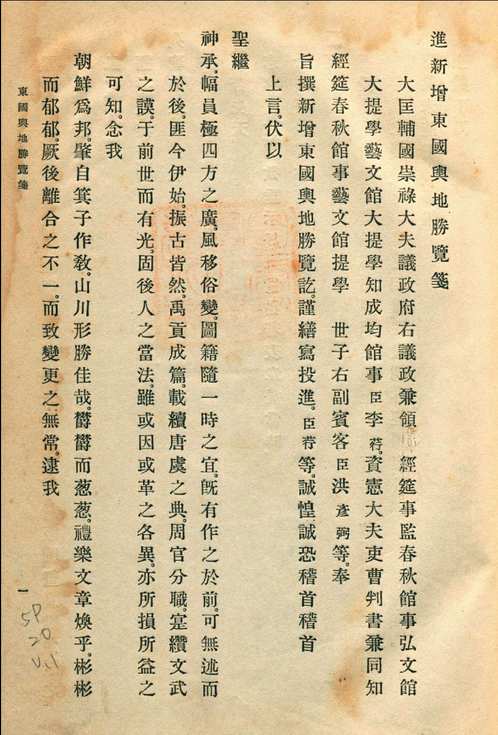 進新增東國輿地勝覽箋
大匡輔國崇祿大夫議政府右議政兼領　經筵事監春秋館事弘文館
大提學藝文館大提學知成均館事臣李荇,資憲大夫吏曹判書兼同知
經筵春秋館事藝文館提學　世子右副賓客臣洪彥弼等,奉
旨撰新增東國輿地勝覽訖,謹繕寫投進,臣荇等,誠惶誠恐稽首稽首
上言,伏以
聖繼
神承,幅員極四方之廣,風移俗變,圖籍隨一時之宜,旣有作之於前,可無述而
於後,匪今伊始,振古皆然,禹貢成篇,載續唐虞之典,周官分職,寔纘文武
之謨,于前世而有光,固後人之當法,雖或因或革之各異,亦所損所益之
可知,念我
朝鮮爲邦,肇自箕子作教,山川形勝佳哉,欝欝而葱葱,禮樂文章煥乎,彬彬
而郁郁,厥後離合之不一,而致變更之無常,逮我
東國輿地勝覽箋
一
5P
20
V.1